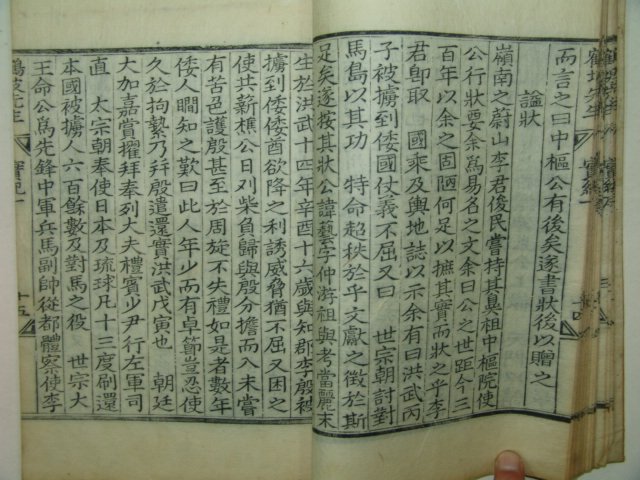 而言之曰中樞公有後矣遂書狀後以贈之
諡狀
嶺南之蔚山李君俊民嘗持其鼻祖中樞院使
公行狀要余爲易名之文余曰公之世距今三
百年以余之固陋何足以摭其實而狀之乎李
君卽取 國乘及輿地誌以示余有曰洪武丙
子被擄到倭國仗義不屈又曰 世宗朝討對
馬島以其功 特命超秩於乎文獻之徵於斯
足矣遂按其狀公諱藝字仲游祖與考當麗末
生於洪武十四年辛酉十六歲與知郡李殷被
擄到倭倭酋欲降之利誘威脅猶不屈又困之
使共薪樵公日刈柴負歸與殷分擔而入未嘗
有苦色護殷甚至於周旋不失禮如是者數年
倭人瞷知之歎曰此人年少而有卓節豈忍使
久於拘縶乃幷殷遣還實洪武戊寅也 朝廷
大加嘉賞擢拜奉列大夫禮賓少尹行左軍司
直 太宗朝奉使日本及琉球凡十三度刷還
本國被擄人六百餘數及對馬之役 世宗大
王命公爲先鋒中軍兵馬副帥從都體察使李
鶴坡先生 實紀一 十五